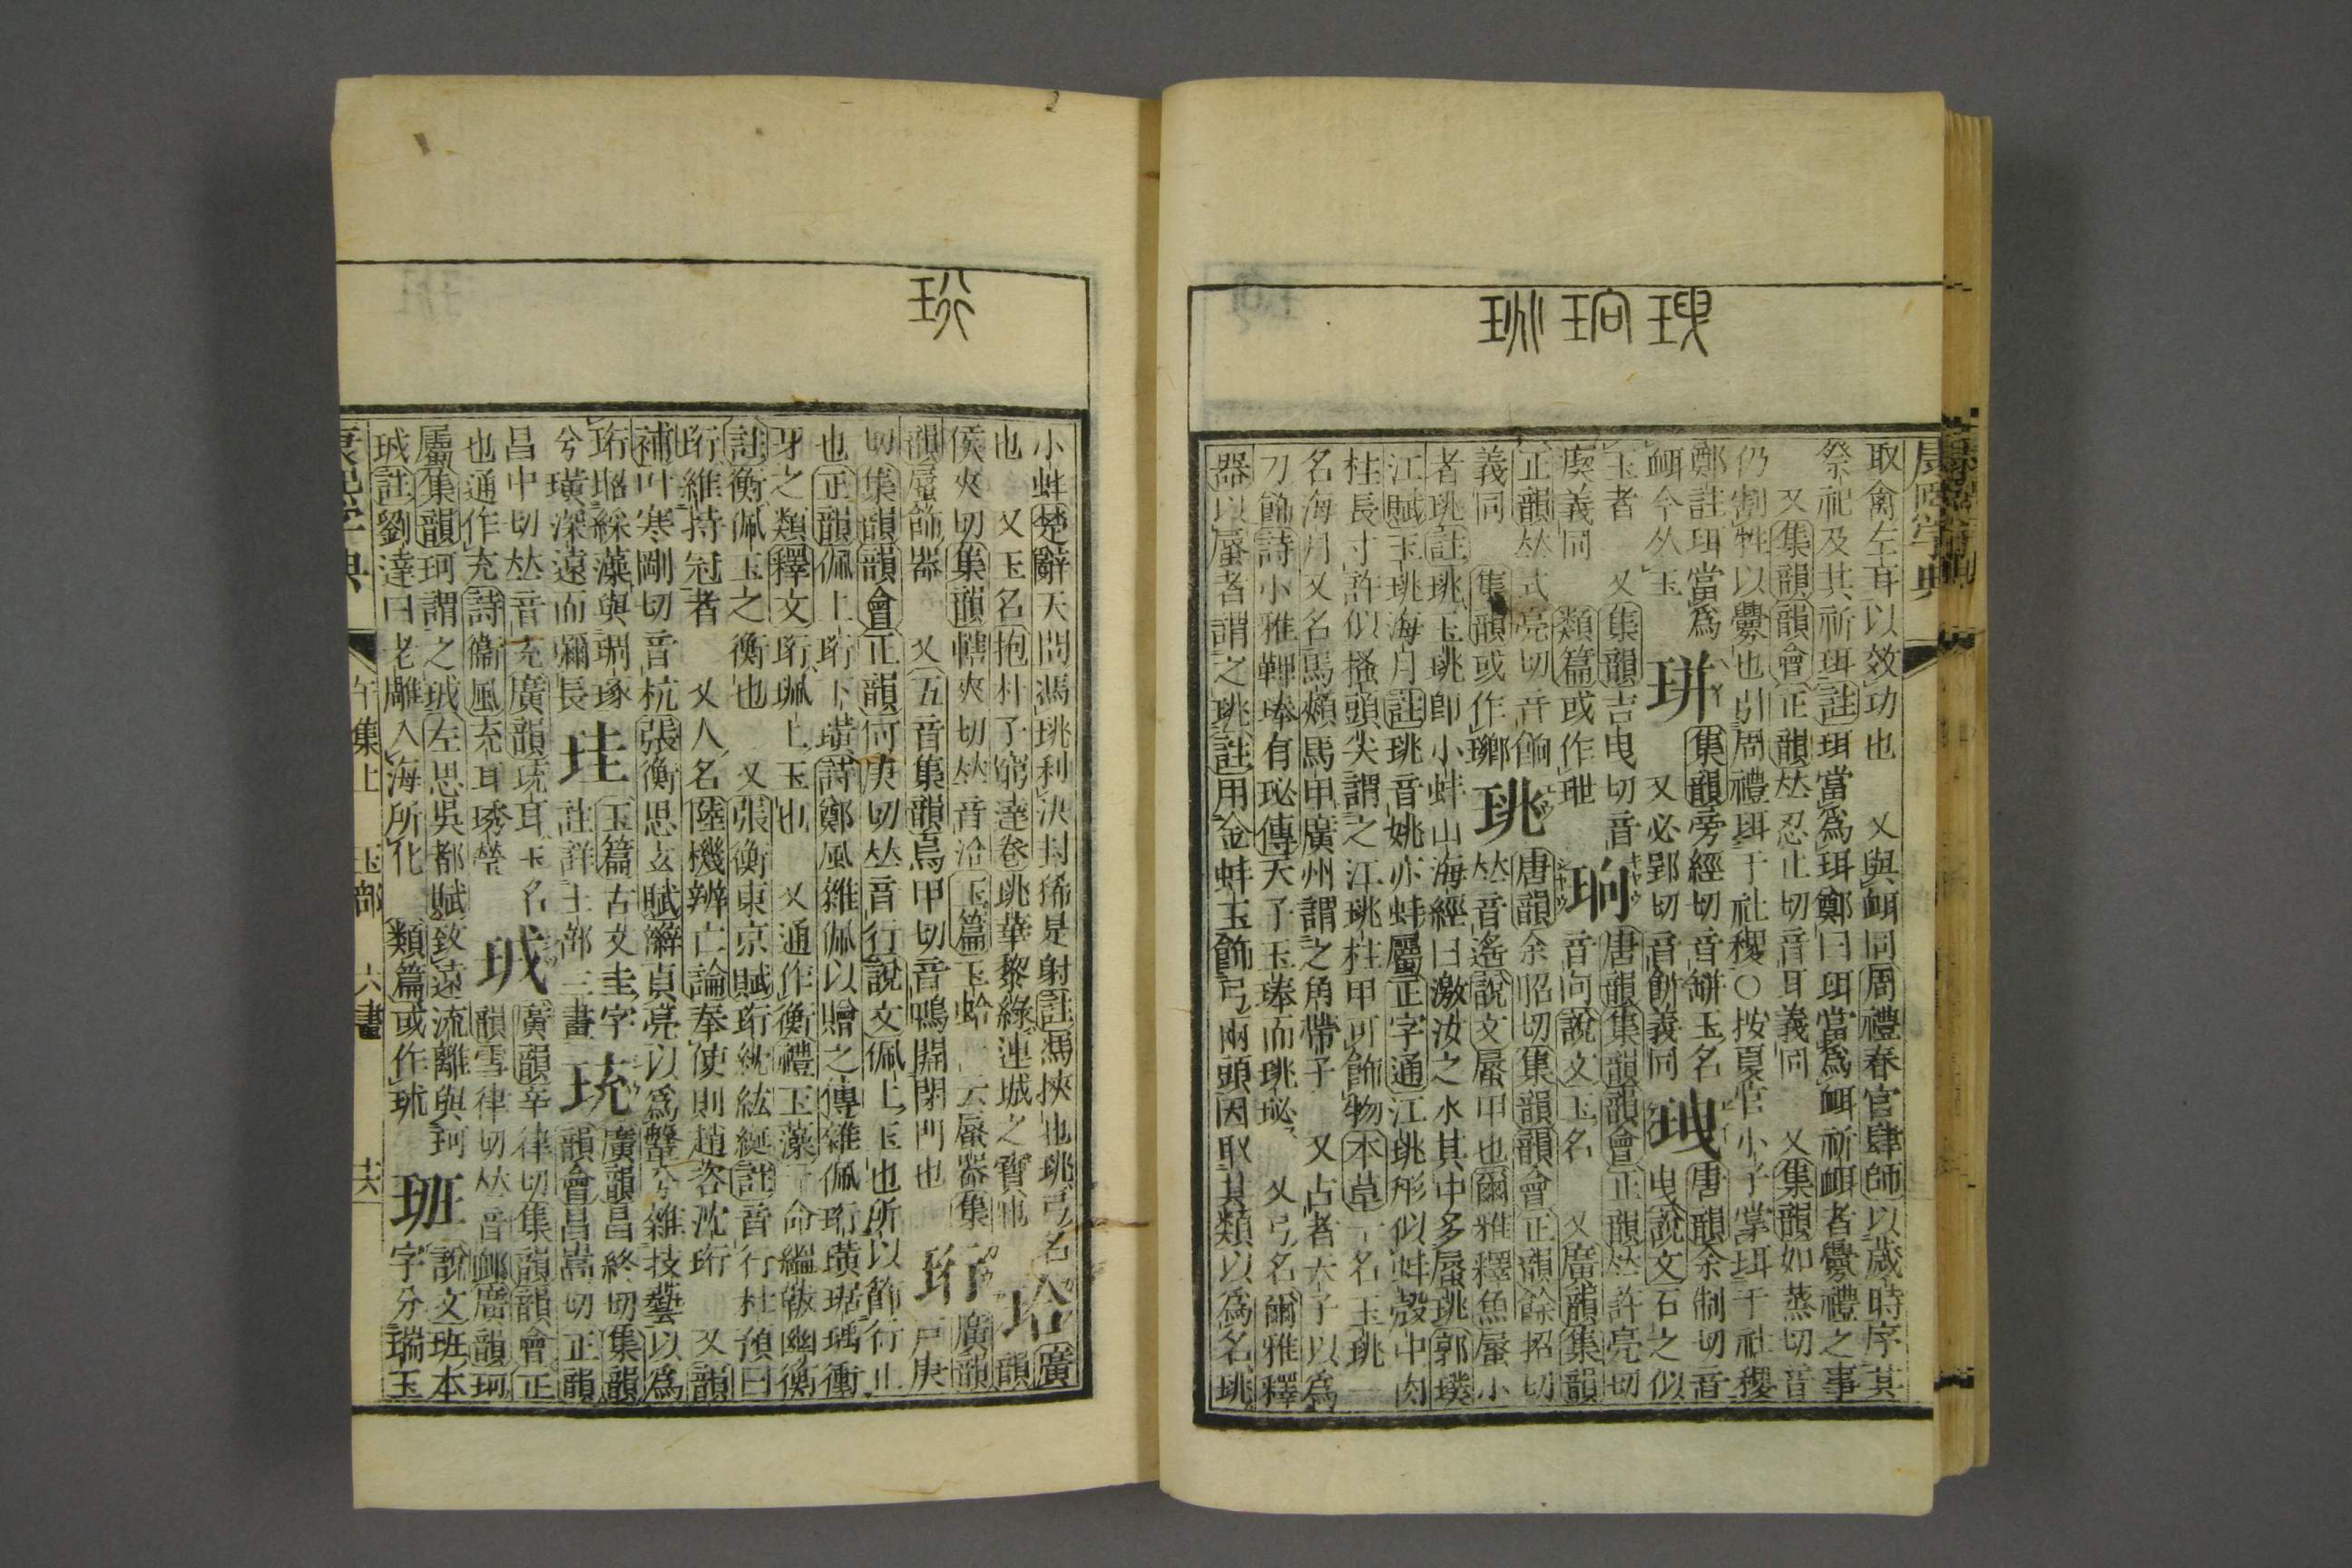 取禽左耳以效功也　又與衈同周禮春官肆師以歲時序其
祭祀及其祈珥註珥當爲珥鄭曰珥當爲衈祈衈者釁禮之事
又集韻韻會正韻𠀤忍止切音耳義同　又集韻如蒸切音
仍割牲以釁也引周禮珥于社稷○按夏官小子掌珥于社稷
鄭註珥當爲
衈今从玉
珜
集韻旁經切音缾玉名
又必郢切音餠義同
玴
唐韻余制切音
曳說文石之似
玉者　又集韻吉曳切音
㓞義同　類篇或作玾
珦
唐韻集韻韻會正韻𠀤許亮切
音向說文玉名　又廣韻集韻
正韻𠀤式亮切音餉
義同　集韻或作瓓
珧
唐韻余昭切集韻韻會正韻餘招切
𠀤音遙說文蜃甲也爾雅釋魚蜃小
者珧註珧玉珧卽小蚌山海經曰激汝之水其中多蜃珧郭璞
江賦玉珧海月註珧音姚亦蚌屬正字通江珧形似蚌殼中肉
柱長寸許似搔頭尖謂之江珧柱甲可飾物本草一名玉珧一
名海月又名馬頰馬甲廣州謂之角帶子　又占者天子以爲
刀飾詩小雅鞞琫有珌傳天子玉琫而珧珌　又弓名爾雅釋
器以蜃者謂之珧註用金蚌玉飾弓兩頭因取其類以爲名珧
小蚌楚辭天問馮珧利決封豨是射註馮挾也珧弓名
也　又玉名抱朴子窮達卷珧華黎綠連城之寶也
珨
廣
韻
侯夾切集韻轄夾切𠀤音洽玉篇玉蛤一云蜃器集
韻蜃飾器　又五音集韻烏甲切音鴨開閉門也
珩
廣韻
戸庚
切集韻韻會正韻何庚切𠀤音行說文佩上玉也所以飾行止
也正韻佩上珩下璜詩鄭風雜佩以贈之傳雜佩珩璜琚瑀衝
牙之類釋文珩珮上玉也　又通作衡禮玉藻一命縕韍幽衡
註衡佩玉之衡也　又張衡東京賦珩紞紘綖註音行杜預曰
珩維持冠者　又人名陸機辨亡論奉使則趙咨沈珩　又韻
補叶寒剛切音杭張衡思𤣥賦辮貞亮以爲鞶兮雜技藝以爲
珩昭綵藻與琱琢
兮璜深遠而彌長
珪
玉篇古文圭字
註詳土部三畫
珫
廣韻昌終切集韻
韻會昌嵩切正韻
昌中切𠀤音充廣韻珫耳玉名
也通作充詩衞風充耳琇瑩
珬
廣韻辛律切集韻韻會正
韻雪律切𠀤音䘏廣韻珂
屬集韻珂謂之珬左思吳都賦致遠流離與珂
珬註劉逵曰老鵰入海所化　類篇或作珗
班
說文班本
字分瑞玉
康熙字典
午集上　玉部　六畫